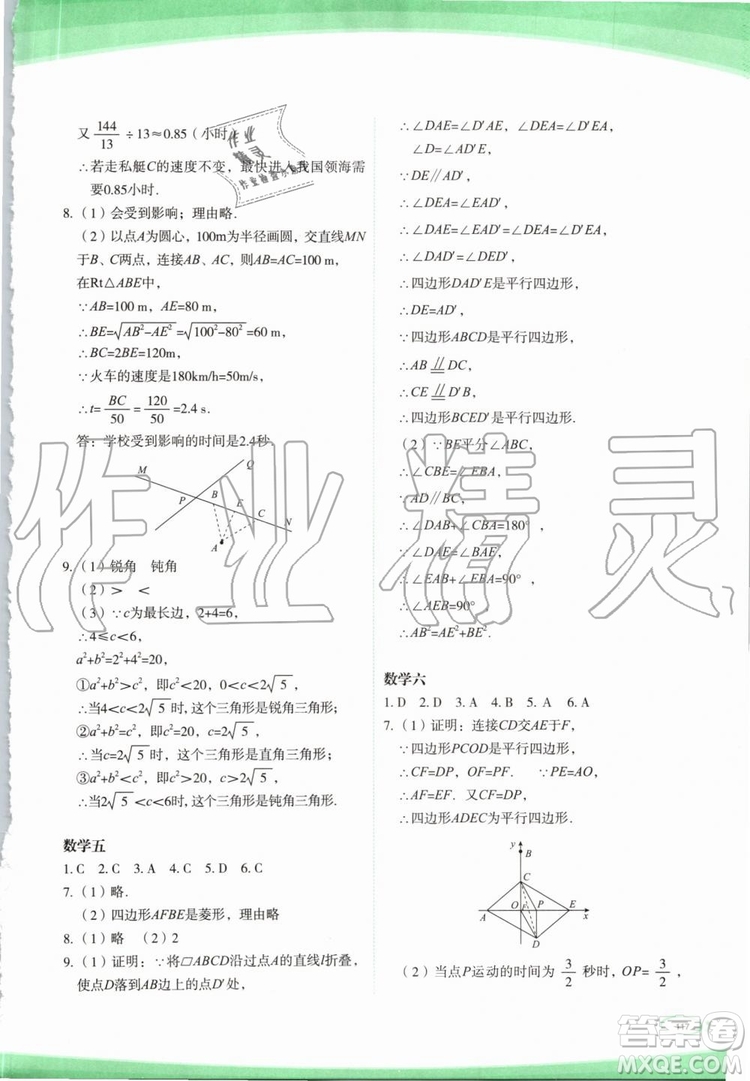 又144/13÷13≈0.85（小时）
∴若走私艇C的速度不变，最快进入我国领海需
要0.85小时.
8.（1）会受到影响；理由略.
（2）以点A为圆心，100m为半径画圆，交直线MN
于B、C两点，连接AB、AC，则AB=AC=100m，
在Rt△ABE中，
∵AB=100 m，AE=80 m，
∴BE=√(AB²-AE²)=√(100²-80²)=60 m，
∴BC=2BE=120m，
∵火车的速度是180km/h=50m/s，
∴t=BC/50=120/50=2.4 s.
答：学校受到影响的时间是2.4秒.
Q
M
P
B
E
C
N
A
9.（1）锐角 钝角
（2）＞ ＜
（3）∵c为最长边，2+4=6，
∴4≤c＜6，
a²+b²=2²+4²=20，
①a²+b²＞c²，即c²＜20，0＜c＜2√5，
∴当4≤c＜2√5时，这个三角形是锐角三角形；
②a²+b²=c²，即c²=20，c=2√5，
∴当c=2√5时，这个三角形是直角三角形；
③a²+b²＜c²，即c²＞20，c＞2√5，
∴当2√5＜c＜6时，这个三角形是钝角三角形.
数学五
1. C 2. C 3. A 4. C 5. C 6. C
7.（1）略.
（2）四边形AFBE是菱形，理由略
8.（1）略 （2）2
9.（1）证明：∵将▱ABCD沿过点A的直线l折叠，
使点D落到AB边上的点D′处，
∴∠DAE=∠D′AE，∠DEA=∠D′EA，
∠D=∠AD′E，
∵DE∥AD′，
∴∠DEA=∠EAD′，
∴∠DAE=∠EAD′=∠DEA=∠D′EA，
∴∠DAD′=∠DED′，
∴四边形DAD′E是平行四边形，
∴DE=AD′，
∵四边形ABCD是平行四边形，
∴AB∥DC，
∴CE∥D′B，
∴四边形BCED′是平行四边形.
（2）∵BE平分∠ABC，
∴∠CBE=∠EBA，
∵AD∥BC，
∴∠DAB+∠CBA=180°，
∵∠DAE=∠BAE，
∴∠EAB+∠EBA=90°，
∴∠AEB=90°
∴AB²=AE²+BE².
数学六
1. D 2. D 3. A 4. B 5. A 6. A
7.（1）证明：连接CD交AE于F，
∵四边形PCOD是平行四边形，
∴CF=DP，OF=PF. ∵PE=AO，
∴AF=EF. 又CF=DP，
∴四边形ADEC为平行四边形.
y
B
C
A
O
F
P
E
x
D
（2）当点P运动的时间为3/2秒时，OP=3/2，
117
作业精灵
答案圈
MXQE.COM